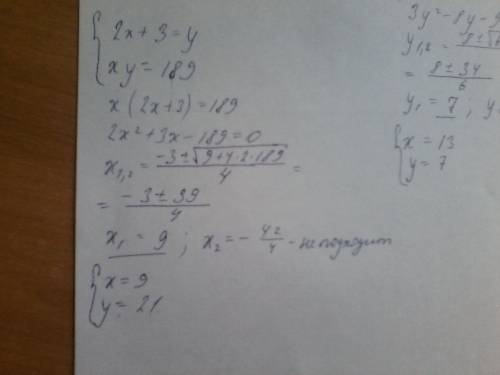 { 2x + 3 = y
xy = 189
x (2x+3) = 189
2x² + 3x - 189 = 0
x₁,₂ = (-3 ± √(9+4·2·189))/4 =
= (-3 ± 39)/4
x₁ = 9 ; x₂ = - 42/4 - не подходит
{ x = 9
y = 21
3y² - 8y - 
y₁,₂ = 8 ± √
= (8 ± 34)/6
y₁ = 7 ; y
{ x = 13
y = 7